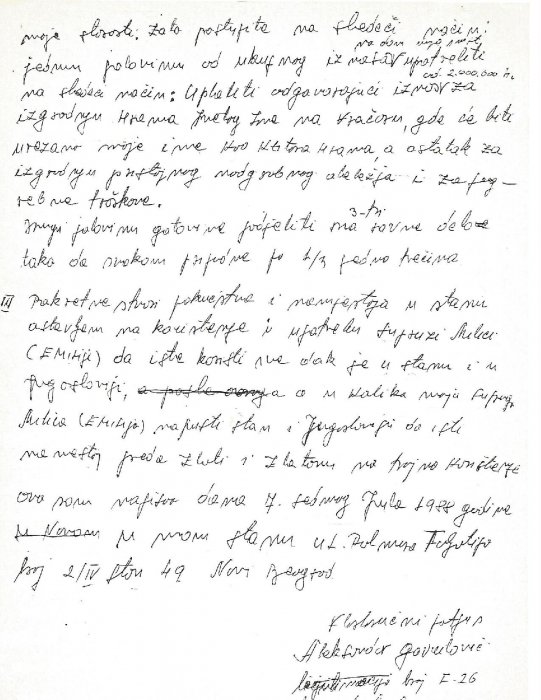 moje slovosti; zato postupite na sledeći način:
jednu polovinu od ukupnog iznosa upotrebiti
na dan moje smrti
od 2.000.000 n.
na sledeći način: Uplatiti odgovarajući iznos za
izgradnju Hrama Svetog Save na Vračaru, gde će biti
urezano moje ime kao Ktitora Hrama, a ostatak za
izgradnju pristojnog nadgrobnog obeležja i za pog-
rebne troškove.
Drugu polovinu gotovine podjeliti na 3-tri ravne dela
tako da svakom pripadne po 1/3 jedna trećina
III Pokretne stvari pokućstva i namještaja u stanu
ostavljam na korištenje i upotrebu supruzi Milici
(EMiliji) da iste koristi sve dok je u stanu i u
Jugoslaviji, a u koliko moja supruga
Milica (EMilija) napusti stan i Jugoslaviju da isti
namestaj preda i Zlatanu na trajno korištenje
ovo sam napisao dana 7. sedmog Jula 1988 godine
u Novom u mom stanu ul. Palmira Toljatija
broj 2/IV stan 49 Novi Beograd
Vlastoručni potpis
Aleksandar
broj E-26